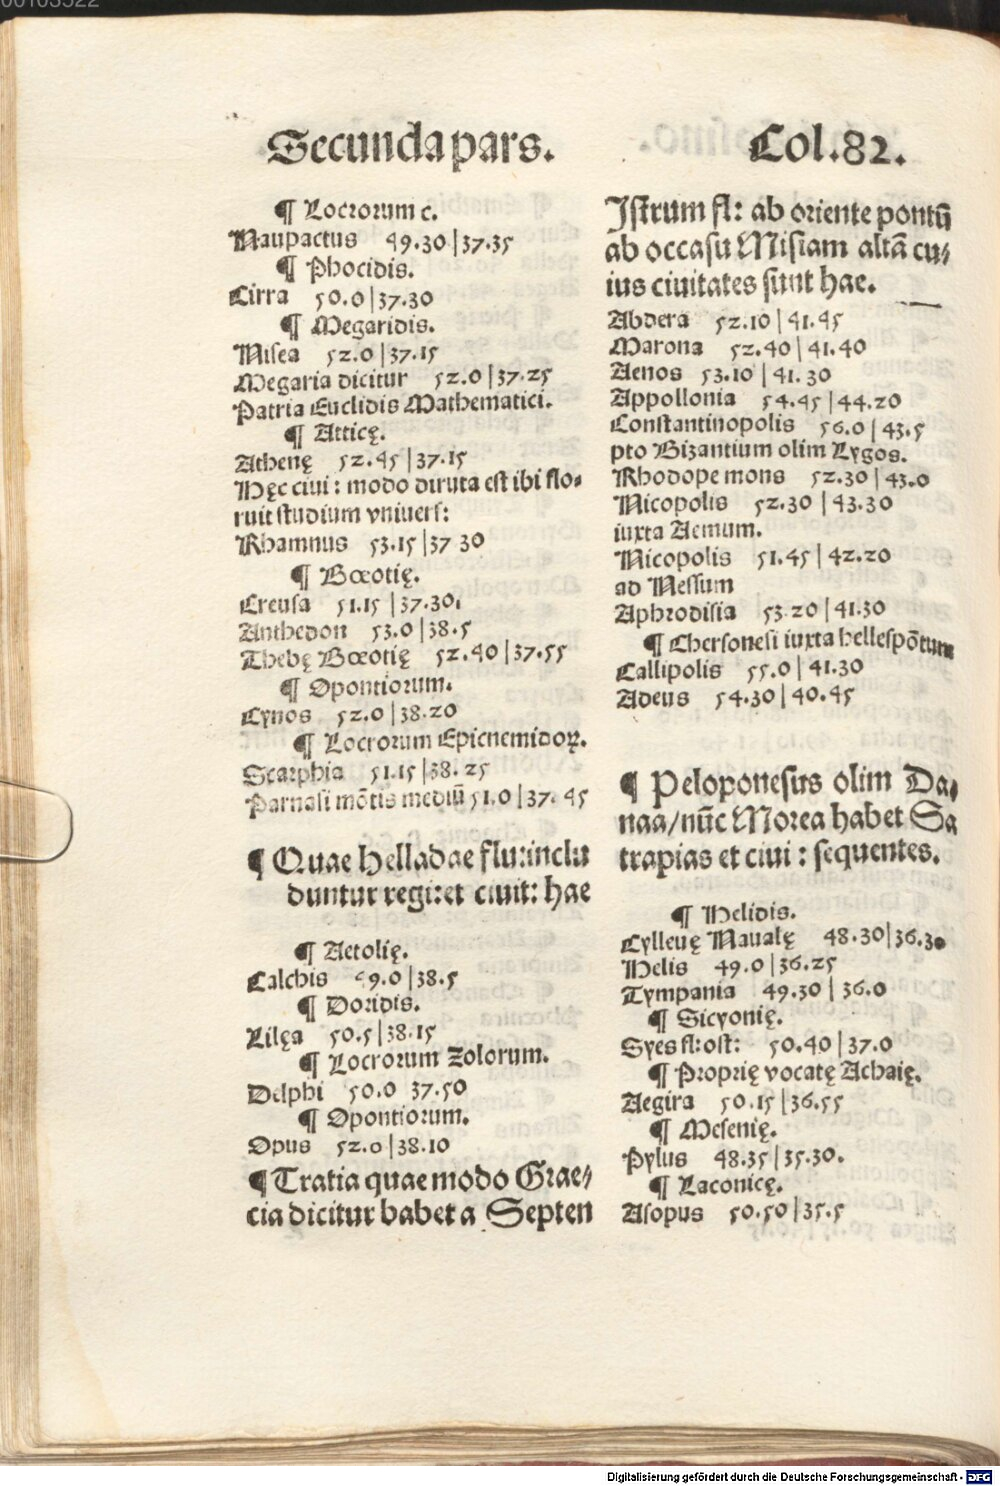 Secunda pars.
Col.82.
¶ Locrorum c.
Naupactus 49.30|37.35
¶ Phocidis.
Cirra 50.0|37.30
¶ Megaridis.
Nisea 52.0|37.15
Megaria dicitur 52.0|37.25
Patria Euclidis Mathematici.
¶ Atticę.
Athenę 52.45|37.15
Hęc ciui: modo diruta est ibi flo-
ruit studium vniuers:
Rhamnus 53.15|37 30
¶ Bœotię.
Creusa 51.15|37.30.
Anthedon 53.0|38.5
Thebę Bœotię 52.40|37.55
¶ Opontiorum.
Cynos 52.0|38.20
¶ Locrorum Epicnemidoꝝ.
Scarphia 51.15|38.25
Parnasi mõtis mediũ 51.0|37.45
¶ Quae helladae flu:inclu
duntur regi:et ciuit: hae
¶ Aetolię.
Calchis 49.0|38.5
¶ Doridis.
Lilęa 50.5|38.15
¶ Locrorum zolorum.
Delphi 50.0 37.50
¶ Opontiorum.
Opus 52.0|38.10
¶ Tratia quae modo Grae-
cia dicitur habet a Septen
Istrum fl: ab oriente pontũ
ab occasu Misiam altã cu-
ius ciuitates sunt hae.
Abdera 52.10|41.45
Marona 52.40|41.40
Aenos 53.10|41.30
Appollonia 54.45|44.20
Constantinopolis 56.0|43.5
pto Bizantium olim Lygos.
Rhodope mons 52.30|43.0
Nicopolis 52.30|43.30
iuxta Aemum.
Nicopolis 51.45|42.20
ad Nessum
Aphrodisia 53.20|41.30
¶ Chersonesi iuxta hellespõtum
Callipolis 55.0|41.30
Adeus 54.30|40.45
¶ Peloponesus olim Da-
naa/nũc Morea habet Sa
trapias et ciui: sequentes.
¶ Helidis.
Cylleuę Naualę 48.30|36.30
Helis 49.0|36.25
Tympania 49.30|36.0
¶ Sicyonię.
Syes fl:ost: 50.40|37.0
¶ Proprię vocatę Achaię.
Aegira 50.15|36.55
¶ Mesenię.
Pylus 48.35|35.30.
¶ Laconicę.
Asopus 50.50|35.5
Digitalisierung gefördert durch die Deutsche Forschungsgemeinschaft - DFG